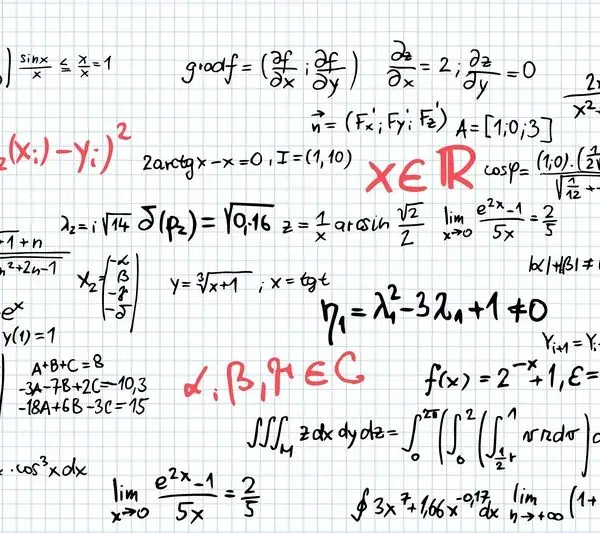 sinx/x ≤ x/x = 1
gradf = (∂f/∂x ; ∂f/∂y)
∂z/∂x = 2 ; ∂z/∂y = 0
n⃗ = (Fx'; Fy'; Fz')
A = [1;0;3]
(xi) - yi)²
2arctgx - x = 0, I = (1, 10)
x ∈ ℝ
cosφ =
λ₂ = i√14
δ(ρ₂) = √0,16
z = 1/x arcsin √2/2
lim x→0 e^(2x)-1 / 5x = 2/5
+1+n
n²+2n-1
x₂ = (-α β -γ -δ)
y = ∛x+1 ; x = tgt
|α|+|β| ≠
η₁ = λ₁² - 3λ₁ + 1 ≠ 0
e^x
y(1) = 1
Y_(i+1) = Y_i
A+B+C = 8
-3A-7B+2C = -10,3
-18A+6B-3C = 15
α, β, γ ∈ C
f(x) = 2^(-x) + 1, ε =
∭_M z dx dy dz = ∫₀^(2π) (∫₀² (
· cos³x dx
lim x→0 e^(2x)-1 / 5x = 2/5
∮ 3x⁷ + 1,66x^(-0,17) dx
lim n→+∞ (1+